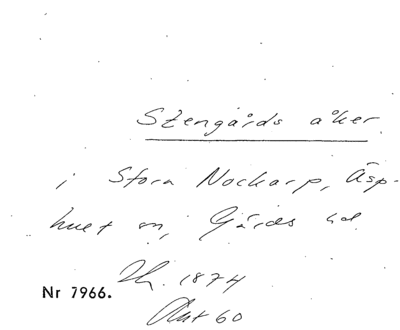 Stengårds åker
i Stora Nockarp, Äsp-
huet sn, Gärds hd
Lh. 1874
Nr 7966.
Akt 60